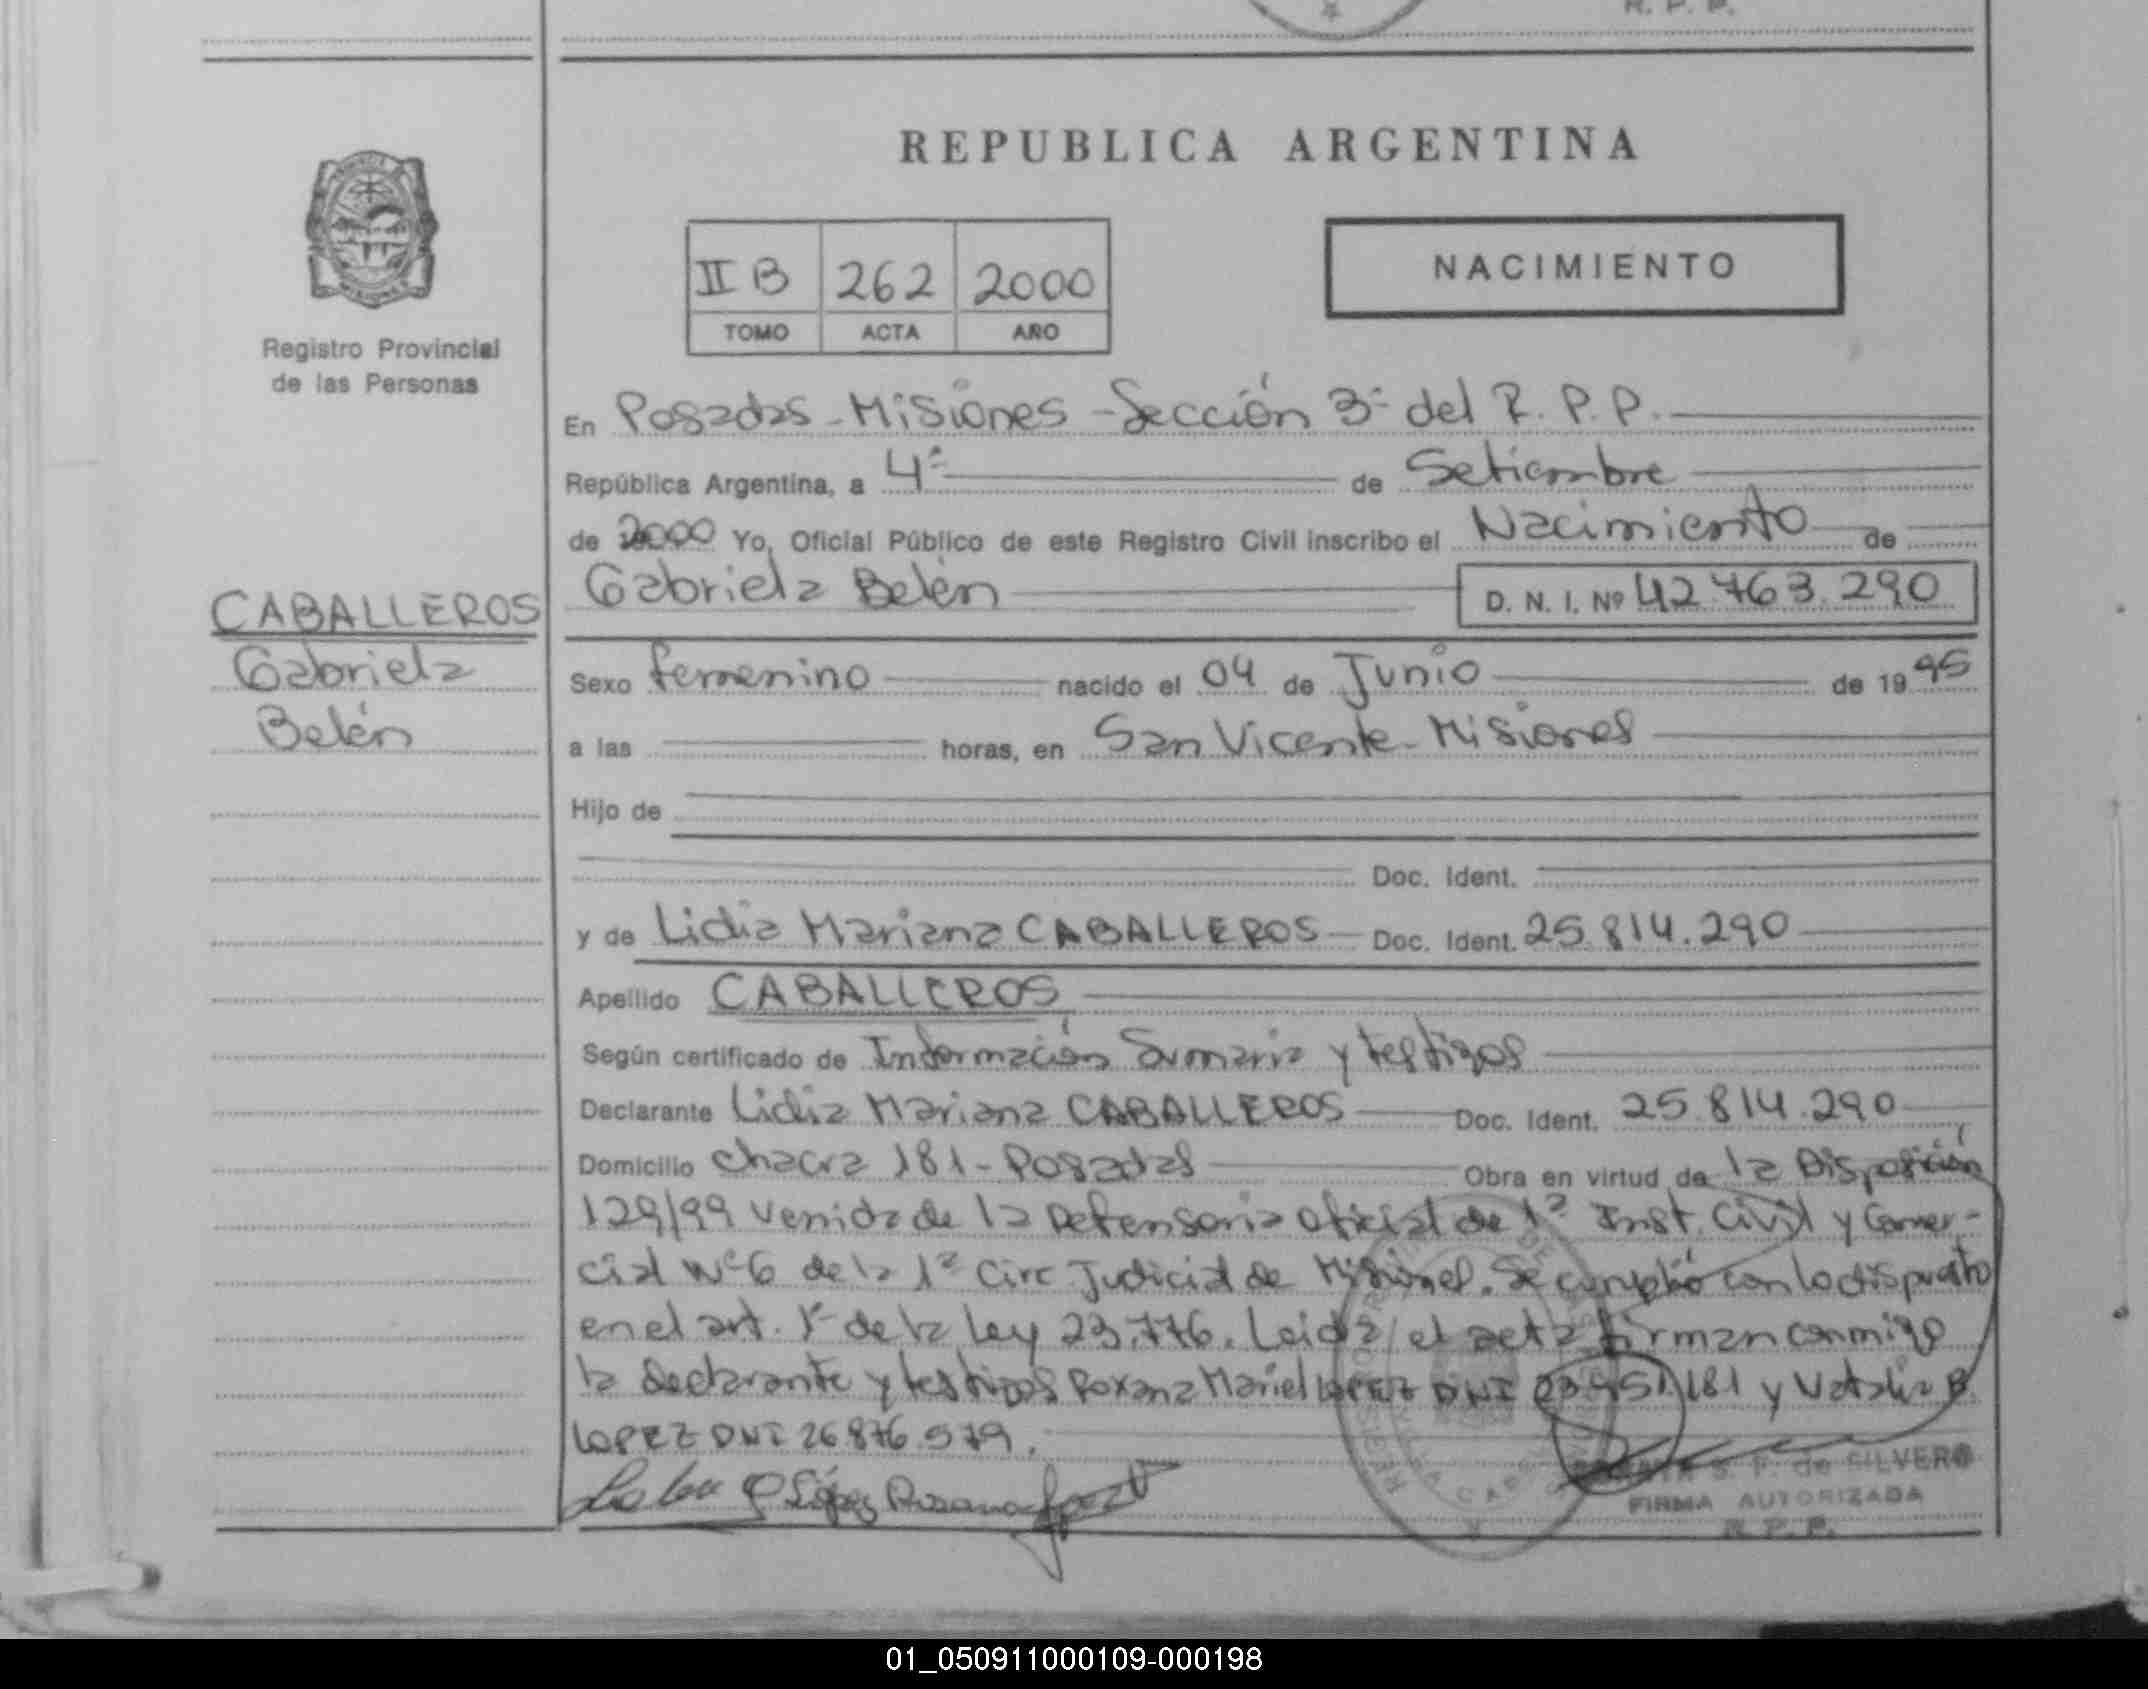 R. P. P.
REPUBLICA ARGENTINA
II B 262 2000
TOMO ACTA AÑO
NACIMIENTO
PROVINCIA
MISIONES
Registro Provincial
de las Personas
En Posadas - Misiones - Sección 3ª del R. P. P.
República Argentina, a 4º de Setiembre
de 2000 Yo, Oficial Público de este Registro Civil inscribo el Nacimiento de
Gabriela Belén D. N. I. Nº 42.763.290
CABALLEROS
Gabriela
Belén
Sexo femenino nacido el 04 de Junio de 1995
a las horas, en San Vicente - Misiones
Hijo de
Doc. Ident.
y de Lidia Mariana CABALLEROS Doc. Ident. 25.814.290
Apellido CABALLEROS
Según certificado de Información Sumaria y testigos
Declarante Lidia Mariana CABALLEROS Doc. Ident. 25.814.290
Domicilio Chacra 181 - Posadas Obra en virtud de la Disposición
129/99 venida de la Defensoria oficial de 1ª Inst. Civil y Comer-
cial Nº 6 de la 1ª Circ. Judicial de Misiones. Se cumplió con lo dispuesto
en el art. 1º de la Ley 23.776. Leida el acta firman conmigo
la declarante y testigos Roxana Mariel LOPEZ DNI 181 y Natalia B.
LOPEZ DNI 26.876.579.
López Roxana
S. F. de SILVERO
FIRMA AUTORIZADA
R. P. P.
01_050911000109-000198